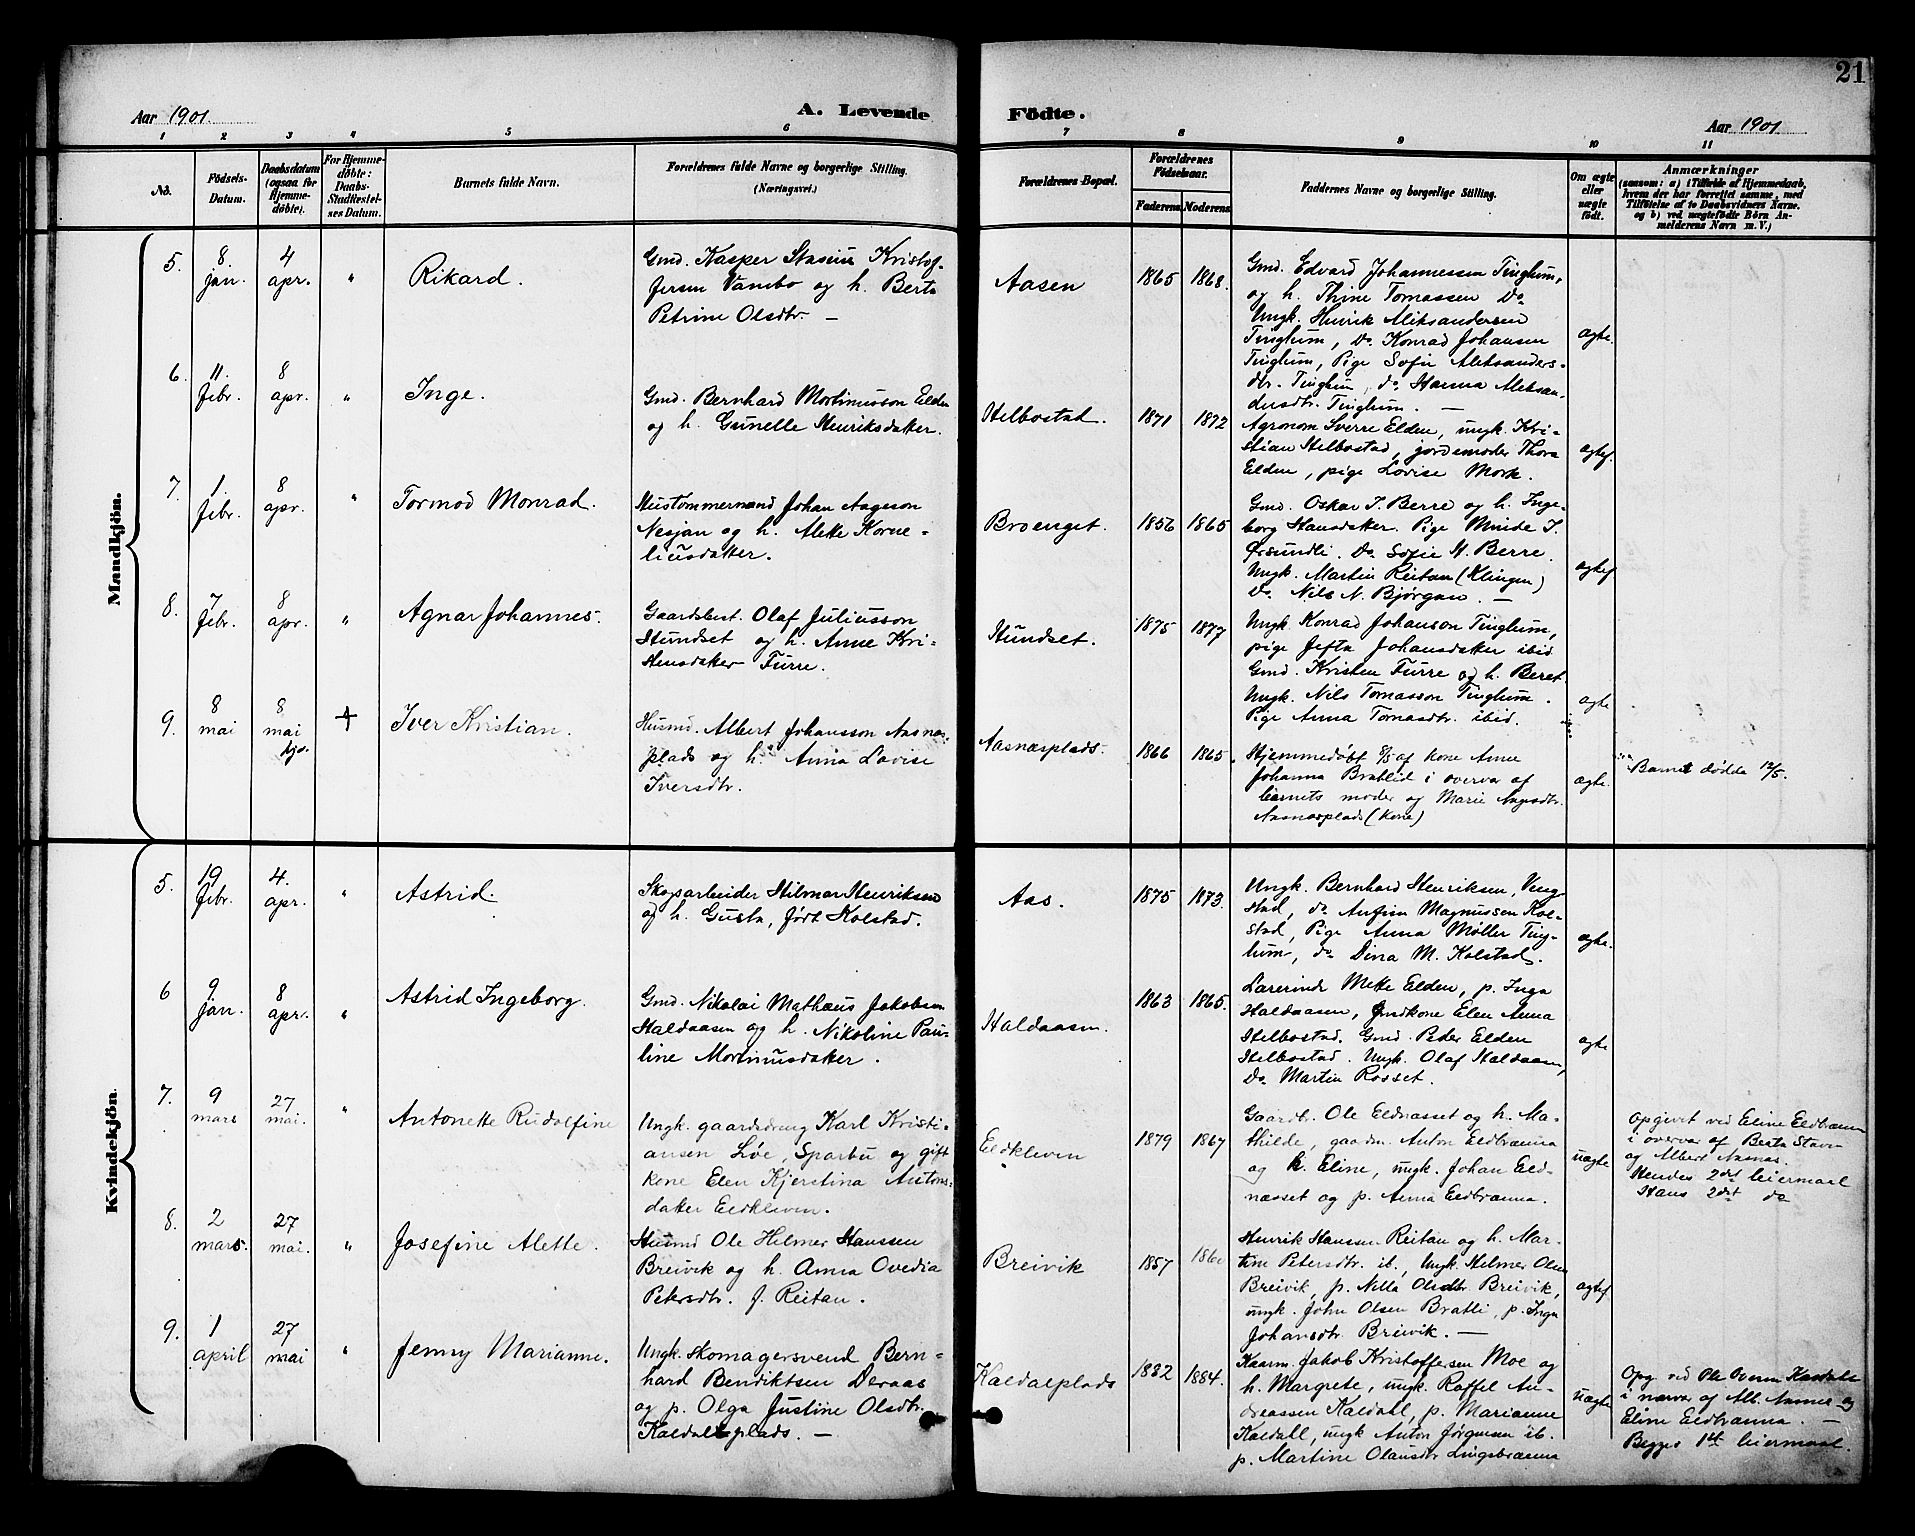 21
Aar 1901.
A. Levende
Födte.
Aar 1901
1 2 3 4 5 6 7 8 9 10 11
No.
Födsels-
Datum.
Daabsdatum
(ogsaa for
Hjemme-
döbte).
For Hjemme-
döbte:
Daabs-
Stadfæstel-
ses Datum.
Barnets fulde Navn.
Forældrenes fulde Navne og borgerlige Stilling.
(Næringsvei.)
Forældrenes Bopæl.
Forældrenes
Födselsaar.
Faderens
Moderens
Faddernes Navne og borgerlige Stilling.
Om ægte
eller
uægte
födt.
Anmærkninger
(saasom: a) i Tilfælde af Hjemmedaab,
hvem der har forrettet samme, med
Tilföielse af to Daabsvidners Navne.
og b) ved uægtefödte Börn An-
melderens Navn m. V.)
Mandkjön.
5.
8.
jan.
4
apr.
"
Rikard.
Gmd. Kasper Stasius Kristof-
fersen Vambo og h. Berte
Petrine Olsdtr. —
Aasen
1865
1868.
Gmd. Edvard Johannessen Tinglum,
og h. Thine Tomassen Do
Ungk. Hinrik Aleksandersen
Tinglum, Do Konrad Johansen
Tinglum, Pige Sofie Aleksanders-
dtr. Tinglum, do Hanna Aleksan-
dersdtr. Tinglum. —
ægte.
6.
11.
febr.
8
apr.
"
Inge.
Gmd. Bernhard Mortinusson Elden
og h. Gunelle Henriksdatter.
Helbostad.
1871
1872
Agronom Sverre Elden, ungk. Kri-
stian Helbostad, jordemoder Thora
Elden, pige Lovise Mork.
ægtef.
7.
1.
febr.
8
apr.
"
Tormod Monrad.
Hustømmermand Johan Aageson
Nesjan og h. Alette Korne-
liusdatter.
Broenget.
1856
1865
Gmd. Oskar I. Berre og h. Inge-
borg Hansdatter. Pige Minde I.
Ørsundli. Do Sofie H. Berre.
Ungk. Martin Reitan (Klingen)
Do Nils N. Bjørgan. —
ægtef
8.
7
febr.
8
apr.
"
Agnar Johannes.
Gaardsbest. Olaf Juliusson
Hundset og h. Anne Kri-
stensdatter Furre.
Hundset.
1875
1877
Ungk. Konrad Johanson Tinglum,
pige Jefta Johansdatter ibid.
Gmd. Kristen Furre og h. Beret.
Ungk. Nils Tomasson Tinglum.
Pige Anna Tomasdtr. ibid.
ægte
9.
8
mai
8
mai
hje.
Iver Kristian.
Husmd. Albert Johansson Aasnæs-
plads og h. Anna Lovise
Iversdtr.
Aasnæsplads.
1866
1865.
Hjemmedøbt 8/5 af kone Anne
Johanna Bratlid i overvær af
barnets moder og Marie Aagesdtr.
Aasnæsplads (kone)
ægte.
Barnet dødde 12/5.
Kvindekjön.
5.
19
febr.
4.
apr.
"
Astrid.
Skogsarbeider Hilmar Henriksen
og h. Gusta, født Kolstad.
Aas.
1875
1873.
Ungk. Bernhard Henriksen, Veng-
stad, do Anfin Magnussen Kol-
stad, Pige Anna Møller Ting-
lum, do Dina M. Kolstad.
ægte.
6
9
jan.
8
apr.
"
Astrid Ingeborg.
Gmd. Nikolai Mathæus Jakobsen
Haldaasen og h. Nikoline Pau-
line Mortinusdatter.
Haldaasen.
1863
1865.
Lærerinde Mette Elden, p. Inga
Haldaasen, gmdkone Elen Anna
Helbostad. Gmd. Peder Elden
Helbostad. Ungk. Olaf Haldaasen,
Do Martin Rosset.
ægte
7.
9
mars
27
mai.
"
Antonette Rudolfine
Ungk. gaardsdreng Karl Kristi-
ansen Løe, Sparbu og gift
kone Elen Kjerstina Antons-
datter Eldkleven.
Eldkleven
1879
1867
Gaardb. Ole Eldnæsset og h. Ma-
thilde, gaadm. Anton Eldbrænna
og h. Eline, ungk. Johan Eld-
næsset og p. Anna Eldbrænna.
uægte
Opgivet ved Eline Eldbrænna
i overvær af Berta Stavn
og Albert Aasnæs.
Hendes 2det leiermaal
Hans 2det do
8.
2
mars.
27
mai.
"
Josefine Alette.
Husmd Ole Helmer Hanssen
Breivik og h. Anna Ovedia
Petersdtr. f. Reitan.
Breivik
1857
1860
Henrik Hanssen Reitan og h. Mar-
tine Petersdtr. ib., ungk. Helmer Olsen
Breivik, p. Nilla Olsdtr. Breivik,
ungk. John Olsen Bratli, p. Inga
Johansdtr. Breivik. —
ægtef
9.
1
april
27
mai
"
Jenny Marianne.
Ungk. skomagersvend Bern-
hard Bendiktsen Deraas
og p. Olga Justine Olsdtr.
Kaldalsplads. —
Kaldalplads
1882
1884.
Kaarm. Jakob Kristoffersen Moe og
h. Margrete, ungk. Roffel An-
dreassen Kaldall, p. Marianne
Kaldall, ungk Anton Jørgensen ib.
p. Martine Olausdtr Lingsbrænna
uægte
Opg. ved Ole Kaldall
i nærvær af Alb. Aasnæs og
Eline Eldbrænna. —
Begges 1ste leiermaal.